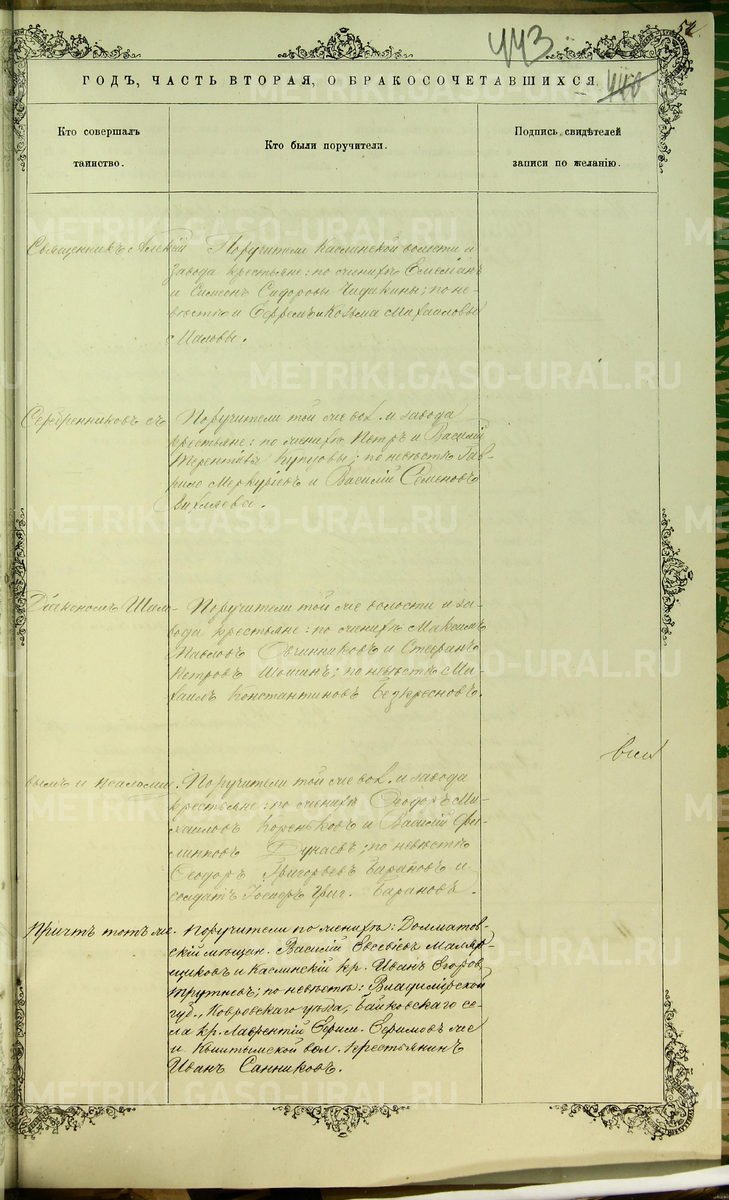 52
443
440
ГОДЪ, ЧАСТЬ ВТОРАЯ, О БРАКОСОЧЕТАВШИХСЯ
Кто совершалъ
таинство.
Кто были поручители.
Подпись свидѣтелей
записи по желанію.
Священникъ Алексій
Поручители Каслинской волости и
завода крестьяне: по женихѣ Емельянъ
и Симеонъ Сидоровы Чидикины; по не-
вѣстѣ и Ефремъ и Козьма Михаиловы
Маловы.
Серебренниковъ съ
Поручители той же вол. и завода
крестьяне: по женихѣ Петръ и Василій
Терентіевы Купцовы; по невѣстѣ Гав-
рилъ Меркуріевъ и Василій Семеновъ
Діакономъ Шало-
Поручители той же волости и за-
вода крестьяне: по женихѣ Максимъ
Павловъ Овчинниковъ и Стефанъ
Петровъ Шошинъ; по невѣстѣ Ми-
хаилъ Константиновъ
вымъ и псаломщ.
Поручители той же вол. и завода
крестьяне: по женихѣ Ѳеодоръ Ми-
хаиловъ Кореньковъ и Василій Фи-
липповъ Дунаевъ; по невѣстѣ
Ѳеодоръ Григорьевъ Барановъ и
солдатъ Григ. Барановъ.
Причтъ тотъ же.
Поручители по женихѣ: Долматов-
скій мѣщан. Василій Евсеевъ Маляр-
щиковъ и Каслинскій кр. Иванъ Егоров.
Трутневъ; по невѣстѣ: Владимірской
губ., Ковровскаго уѣзда, Байковскаго се-
ла кр. Лаврентій Ефим. Ефимовъ же
и Кыштымской вол. крестьянинъ
Иванъ Санниковъ.
METRIKI.GASO-URAL.RU